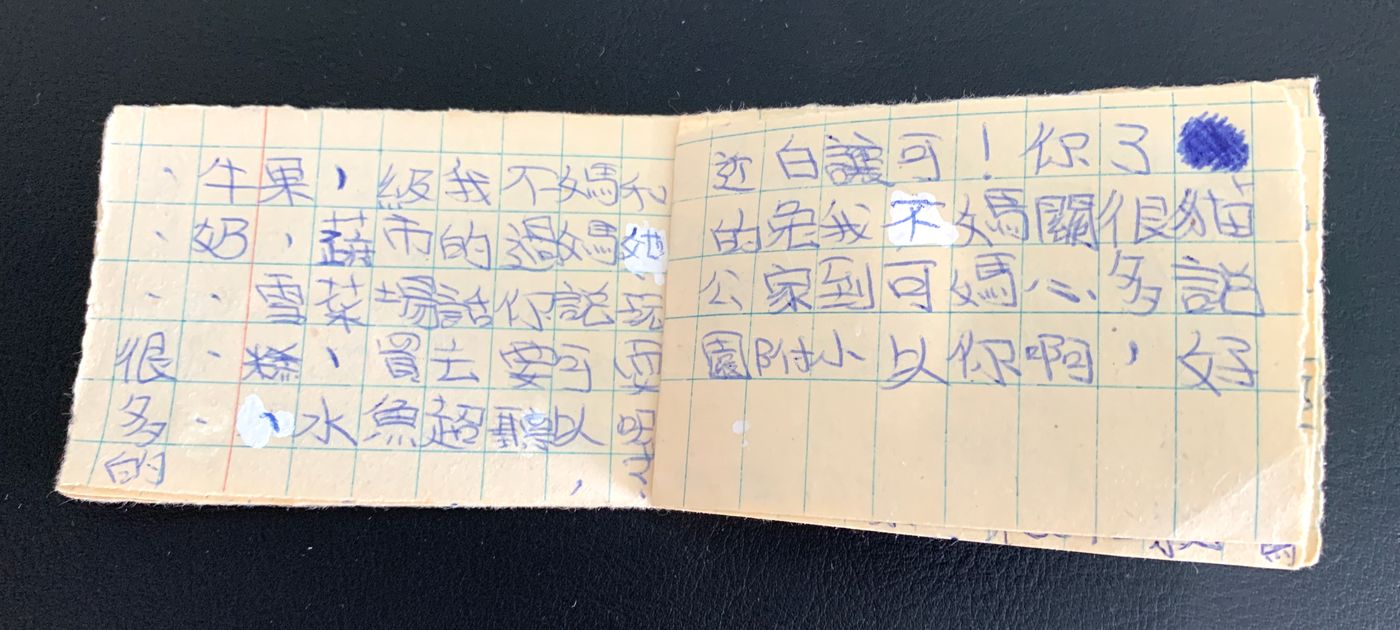 貓說好
了很多，
你關心啊
！媽媽你
可不可以
讓我到小
白兔家附
近的公園
和她玩耍呢？
媽媽說可以，
不過你要聽
我的話去超
級市場買魚
、蔬菜、水
果、雪糕、
牛奶、、、
、、、很多的